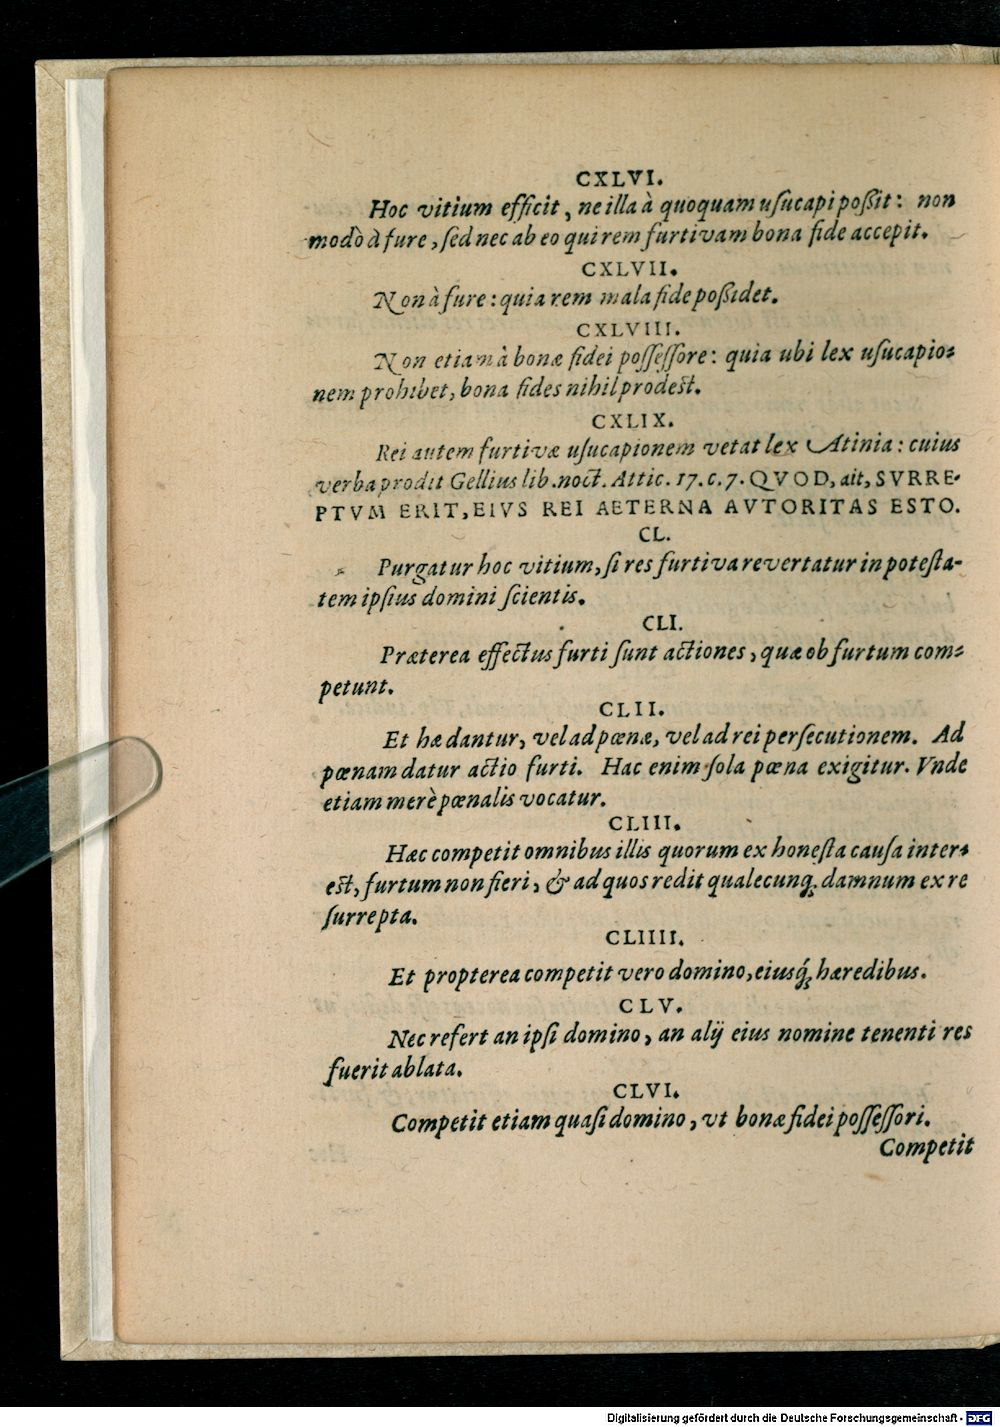 CXLVI.
Hoc vitium efficit, ne illa à quoquam uſucapi poßit: non
modò à fure, ſed nec ab eo qui rem furtivam bona fide accepit.
CXLVII.
Non à fure: quia rem mala fide poßidet.
CXLVIII.
Non etiam à bonæ fidei poſſeſſore: quia ubi lex uſucapio-
nem prohibet, bona fides nihil prodest.
CXLIX.
Rei autem furtivæ uſucapionem vetat lex Atinia: cuius
verba prodit Gellius lib. noct. Attic. 17. c. 7. QVOD, ait, SVRRE-
PTVM ERIT, EIVS REI AETERNA AVTORITAS ESTO.
CL.
Purgatur hoc vitium, ſi res furtiva revertatur in poteſta-
tem ipſius domini ſcientis.
CLI.
Præterea effectus furti ſunt actiones, quæ ob furtum com-
petunt.
CLII.
Et hæ dantur, vel ad pœnæ, vel ad rei perſecutionem. Ad
pœnam datur actio furti. Hac enim ſola pœna exigitur. Vnde
etiam merè pœnalis vocatur.
CLIII.
Hæc competit omnibus illis quorum ex honeſta cauſa inter-
est, furtum non fieri, & ad quos redit qualecunq́ꝫ damnum ex re
ſurrepta.
CLIIII.
Et propterea competit vero domino, eiusq́ꝫ hæredibus.
CLV.
Nec refert an ipſi domino, an alij eius nomine tenenti res
fuerit ablata.
CLVI.
Competit etiam quaſi domino, vt bonæ fidei poſſeſſori.
Competit
Digitalisierung gefördert durch die Deutsche Forschungsgemeinschaft - DFG